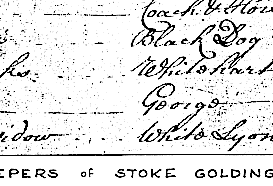 Coach & Hors
Black Dog
ks. Whitehart
George
indow White Lyon
EPERS of STOKE GOLDING